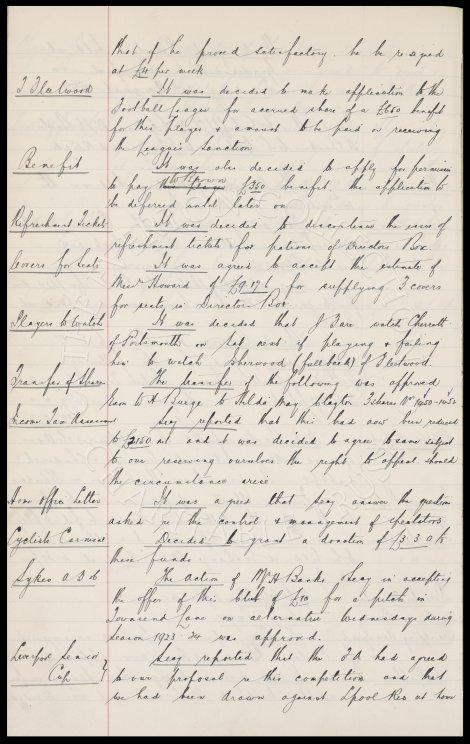 that if he proved satisfactory he be resigned
at £4 per week
T. Fleetwood It was decided to make application to the
Football League for accrued share of a £650 benefit
for this Player & amount to be paid on receiving
the Leagues Sanction
Benefit It was also decided to apply for permission
to pay W Brown £350 benefit, the application to
be deferred until later on
Refreshment Tickets It was decided to discontinue the issue of
refreshment tickets for patrons of Directors Box.
Covers for Seats It was agreed to accept the estimate of
Howard of £9.17.6 for supplying 3 covers
for seats in Directors Box.
Players to Watch It was decided that J Fare watch Cherrett
of Portsmouth on Sat next if playing & failing
him to watch Sherwood (fullback) of Fleetwood
Transfer of Shares The transfer of the following was approved
to Hilda May Claxton 3 shares No 1450-1452
Income Tax Secy reported that this had now been reduced
to £2150 and it was decided to agree to same subject
to our reserving ourselves the right to appeal should
the circumstance arise
Home Office Letter It was agreed that Secy answer the questions
asked re the control & management of spectators.
Cyclists Carnival Decided to grant a donation of £3.3.0 to
these funds
Sykes The action of Mr H Banks Secy in accepting
the offer of this club of £10 for a pitch in
Townsend Lane on alternative Wednesdays during
season 1923-24 was approved.
Liverpool Senior Cup } Secy reported that the F.A had agreed
to our proposal re this competition and that
we had been drawn against Lpool Res at home